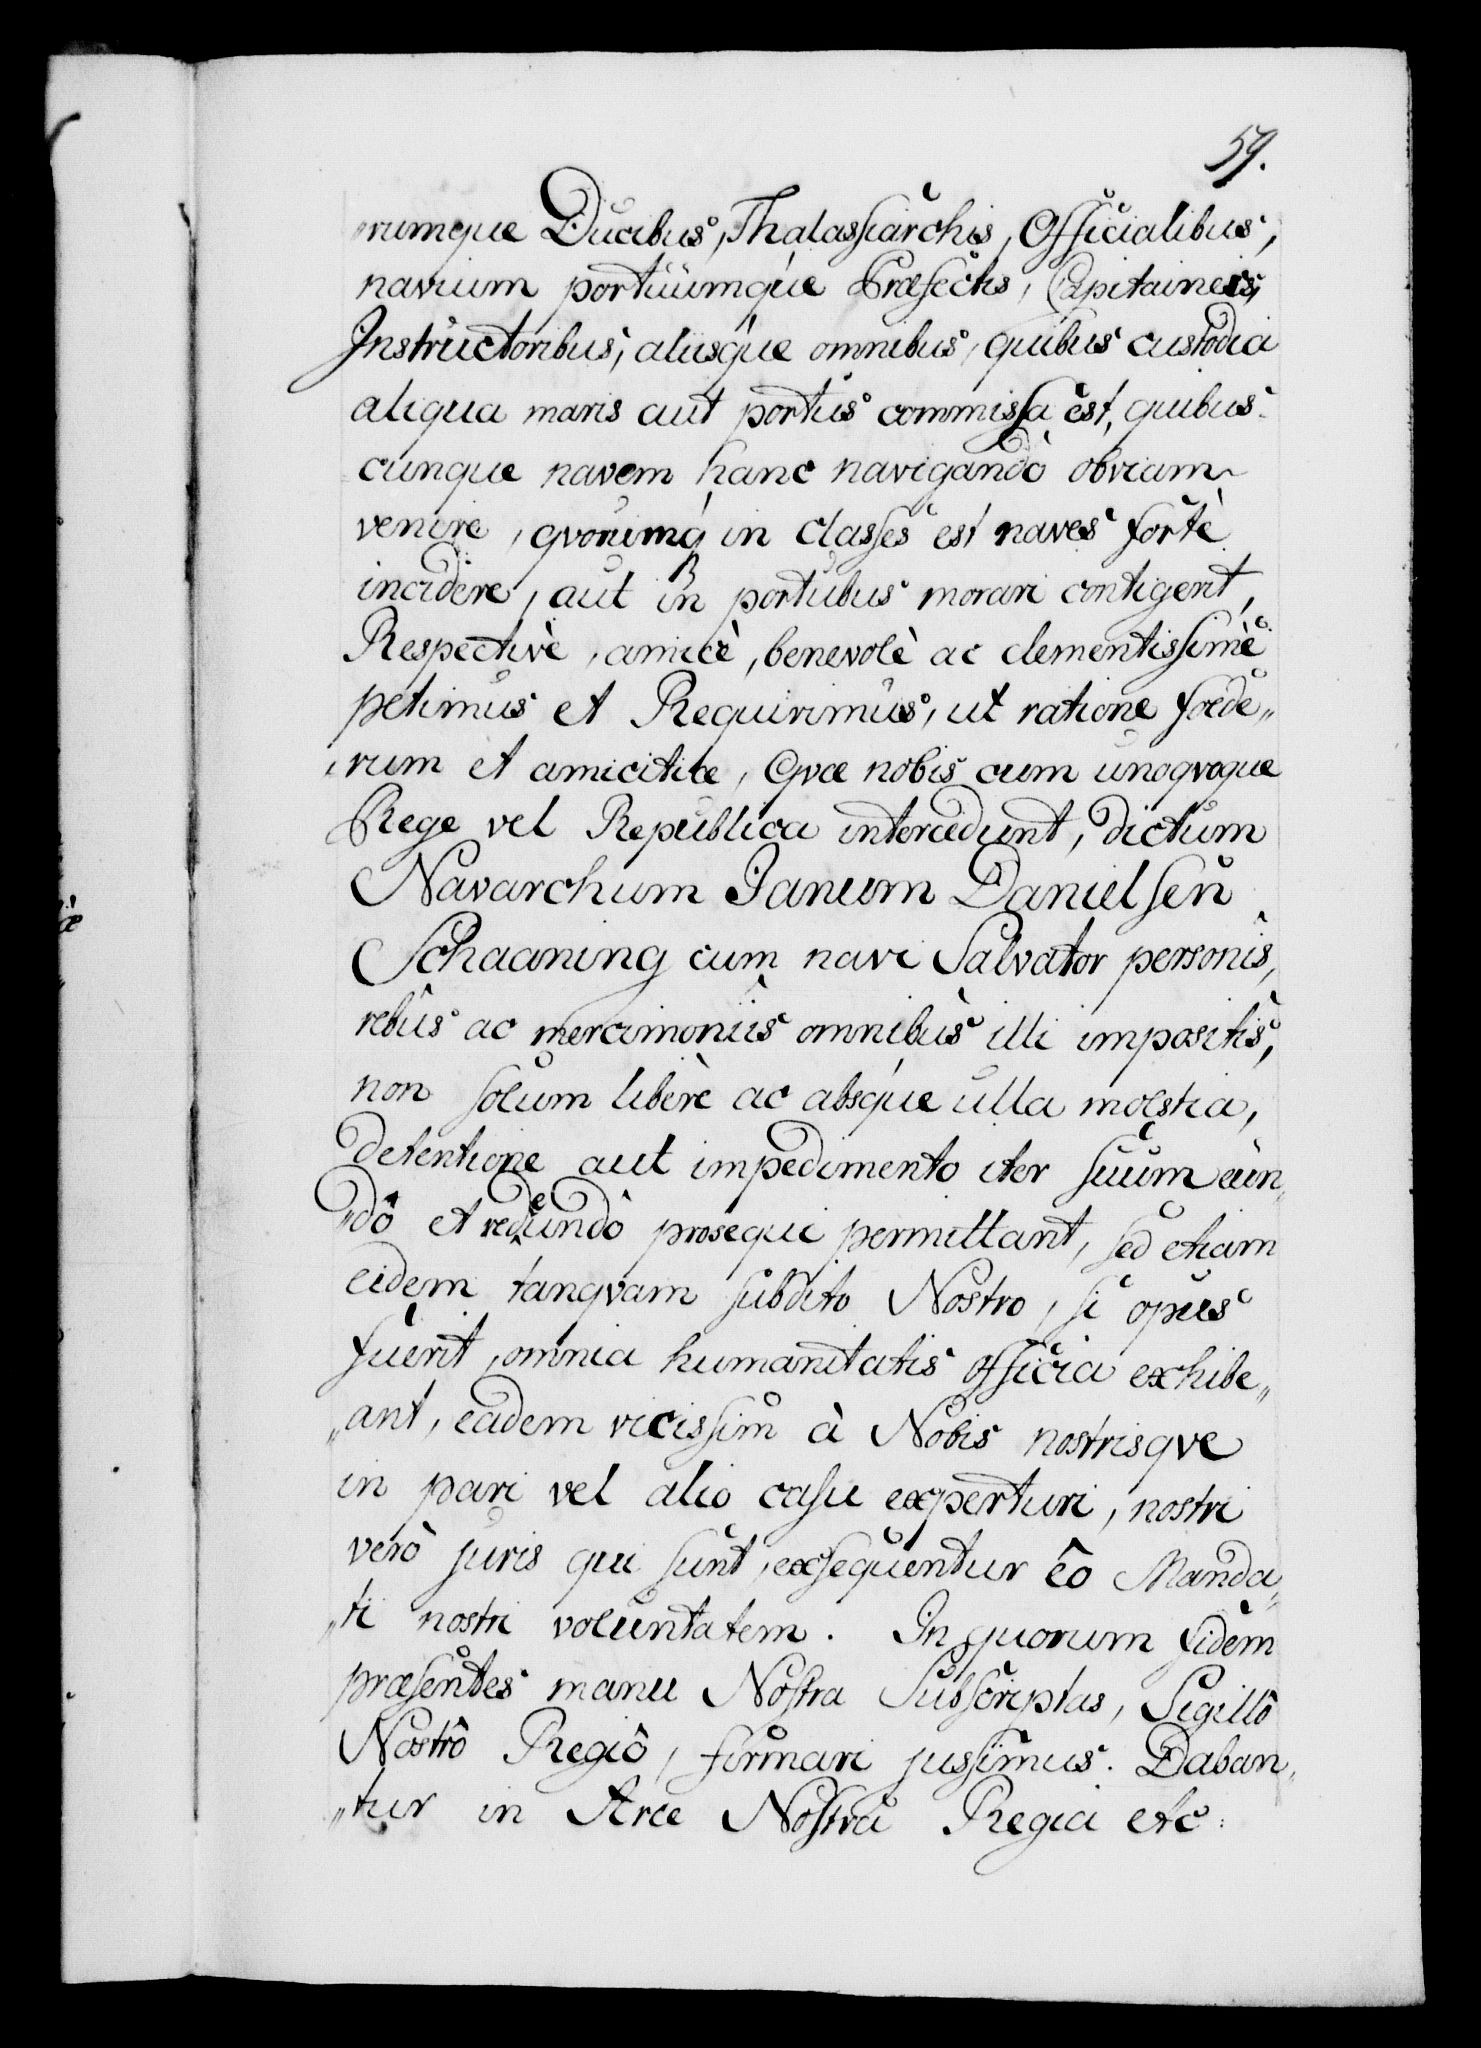 59.
„rumque Ducibus, Thalassiarchis, Officialibus,
navium portuumque Præfectis, Capitaineis,
Instructoribus, aliisque omnibus, quibus custodia
aliqua maris aut portus commissa est, quibus-
cunque navem hanc navigandò obviam
venire, qvorumq in classes est naves fortè
incidere, aut in portubus morari contigerit,
Respectivè, amicè, benevolè ac clementissimè
petimus et Requirimus, ut ratione foede„
„rum et amicitiæ, Qvæ nobis cum unoqvoque
Rege vel Republica intercedunt, dictum
Navarchum Janum Danielsen
Schaaning cum navi Salvator personis,
rebus ac mercimoniis omnibus illi impositis,
non solum liberè ac absque ulla molestia,
detentione aut impedimento iter suum eun„
„dô et redeundò prosequi permittant, sed etiam
eidem tanqvam subdito Nostro, si opus
fuerit, omnia humanitatis officia exhibe„
„ant, eadem vicissim à Nobis nostrisqve
in pari vel alio casu experturi, nostri
verò juris qui sunt, exsequentur eô Manda„
„ti nostri voluntatem. In quorum fidem
præsentes manu Nostra Subscriptas, Sigillô
Nostrô Regiô, firmari jussimus. Daban„
„tur in Arce Nostra Regia etc: